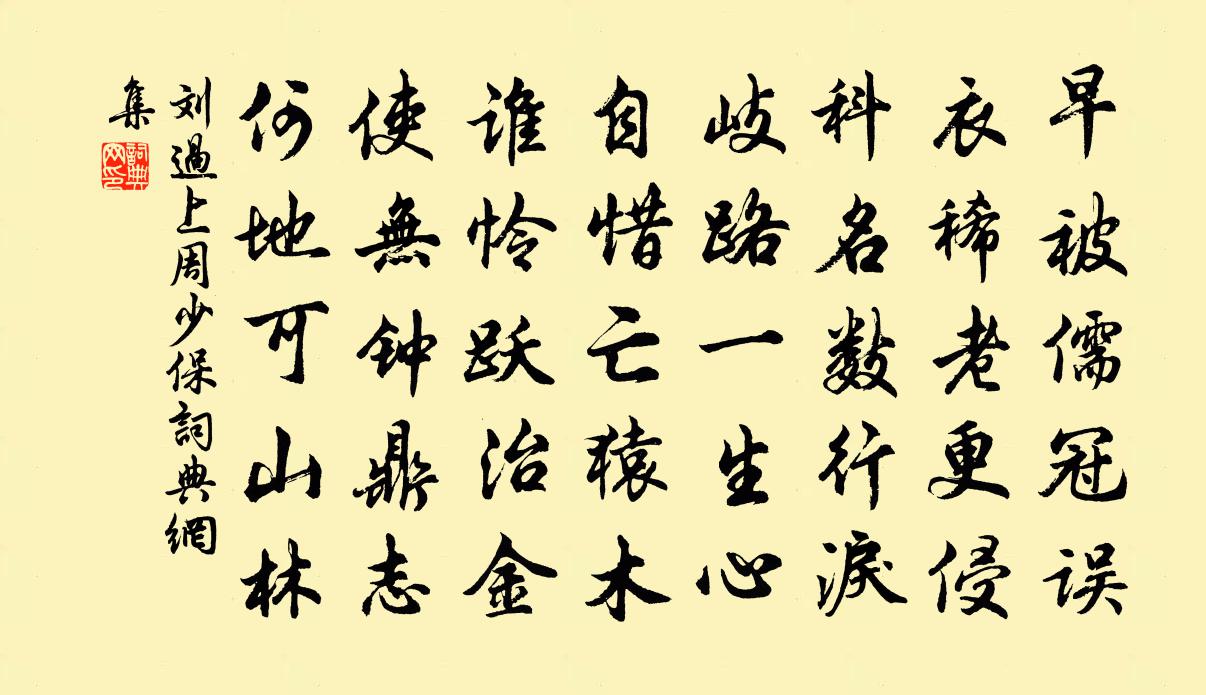 早被儒冠误
衣稀老更侵
科名数行淚
岐路一生心
自惜亡猿木
谁怜跃治金
使無钟鼎志
何地可山林
刘過上周少保詞典網
集
詞典网印